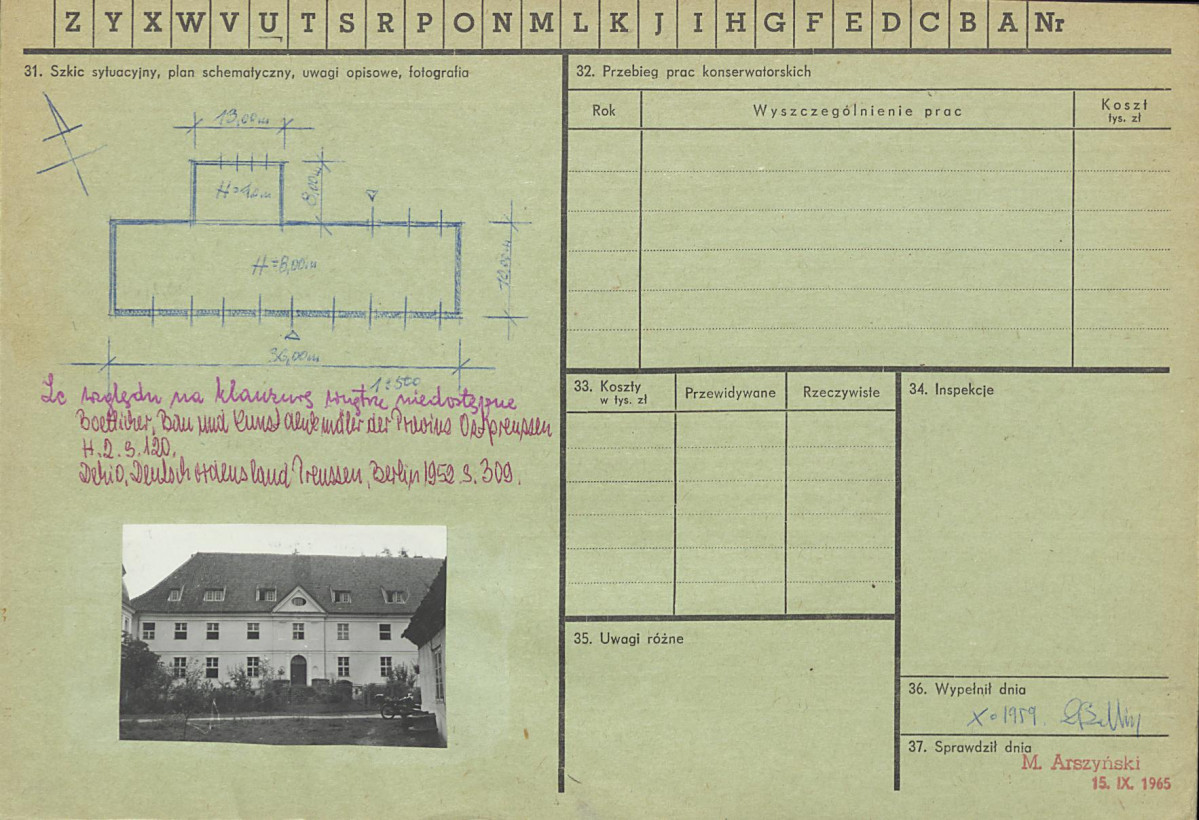 Z Y X W V U T S R P O N M L K J I H G F E D C B A Nr
31. Szkic sytuacyjny, plan schematyczny, uwagi opisowe, fotografia
13,00m
8,00m
H=8,00m
10,00m
36,00m
1:500
Ze względu na klauzurę wnętrze niedostępne
Boetticher, Bau und Kunstdenkmäler der Provinz Ostpreussen
H.2. S.120.
Dehio, Deutschordensland Preussen, Berlin 1952 S. 309.
32. Przebieg prac konserwatorskich
Rok
Wyszczególnienie prac
Koszt
tys. zł
33. Koszty
w tys. zł
Przewidywane
Rzeczywiste
34. Inspekcje
35. Uwagi różne
36. Wypełnił dnia
X 1959.
37. Sprawdził dnia
M. Arszyński
15. IX. 1965